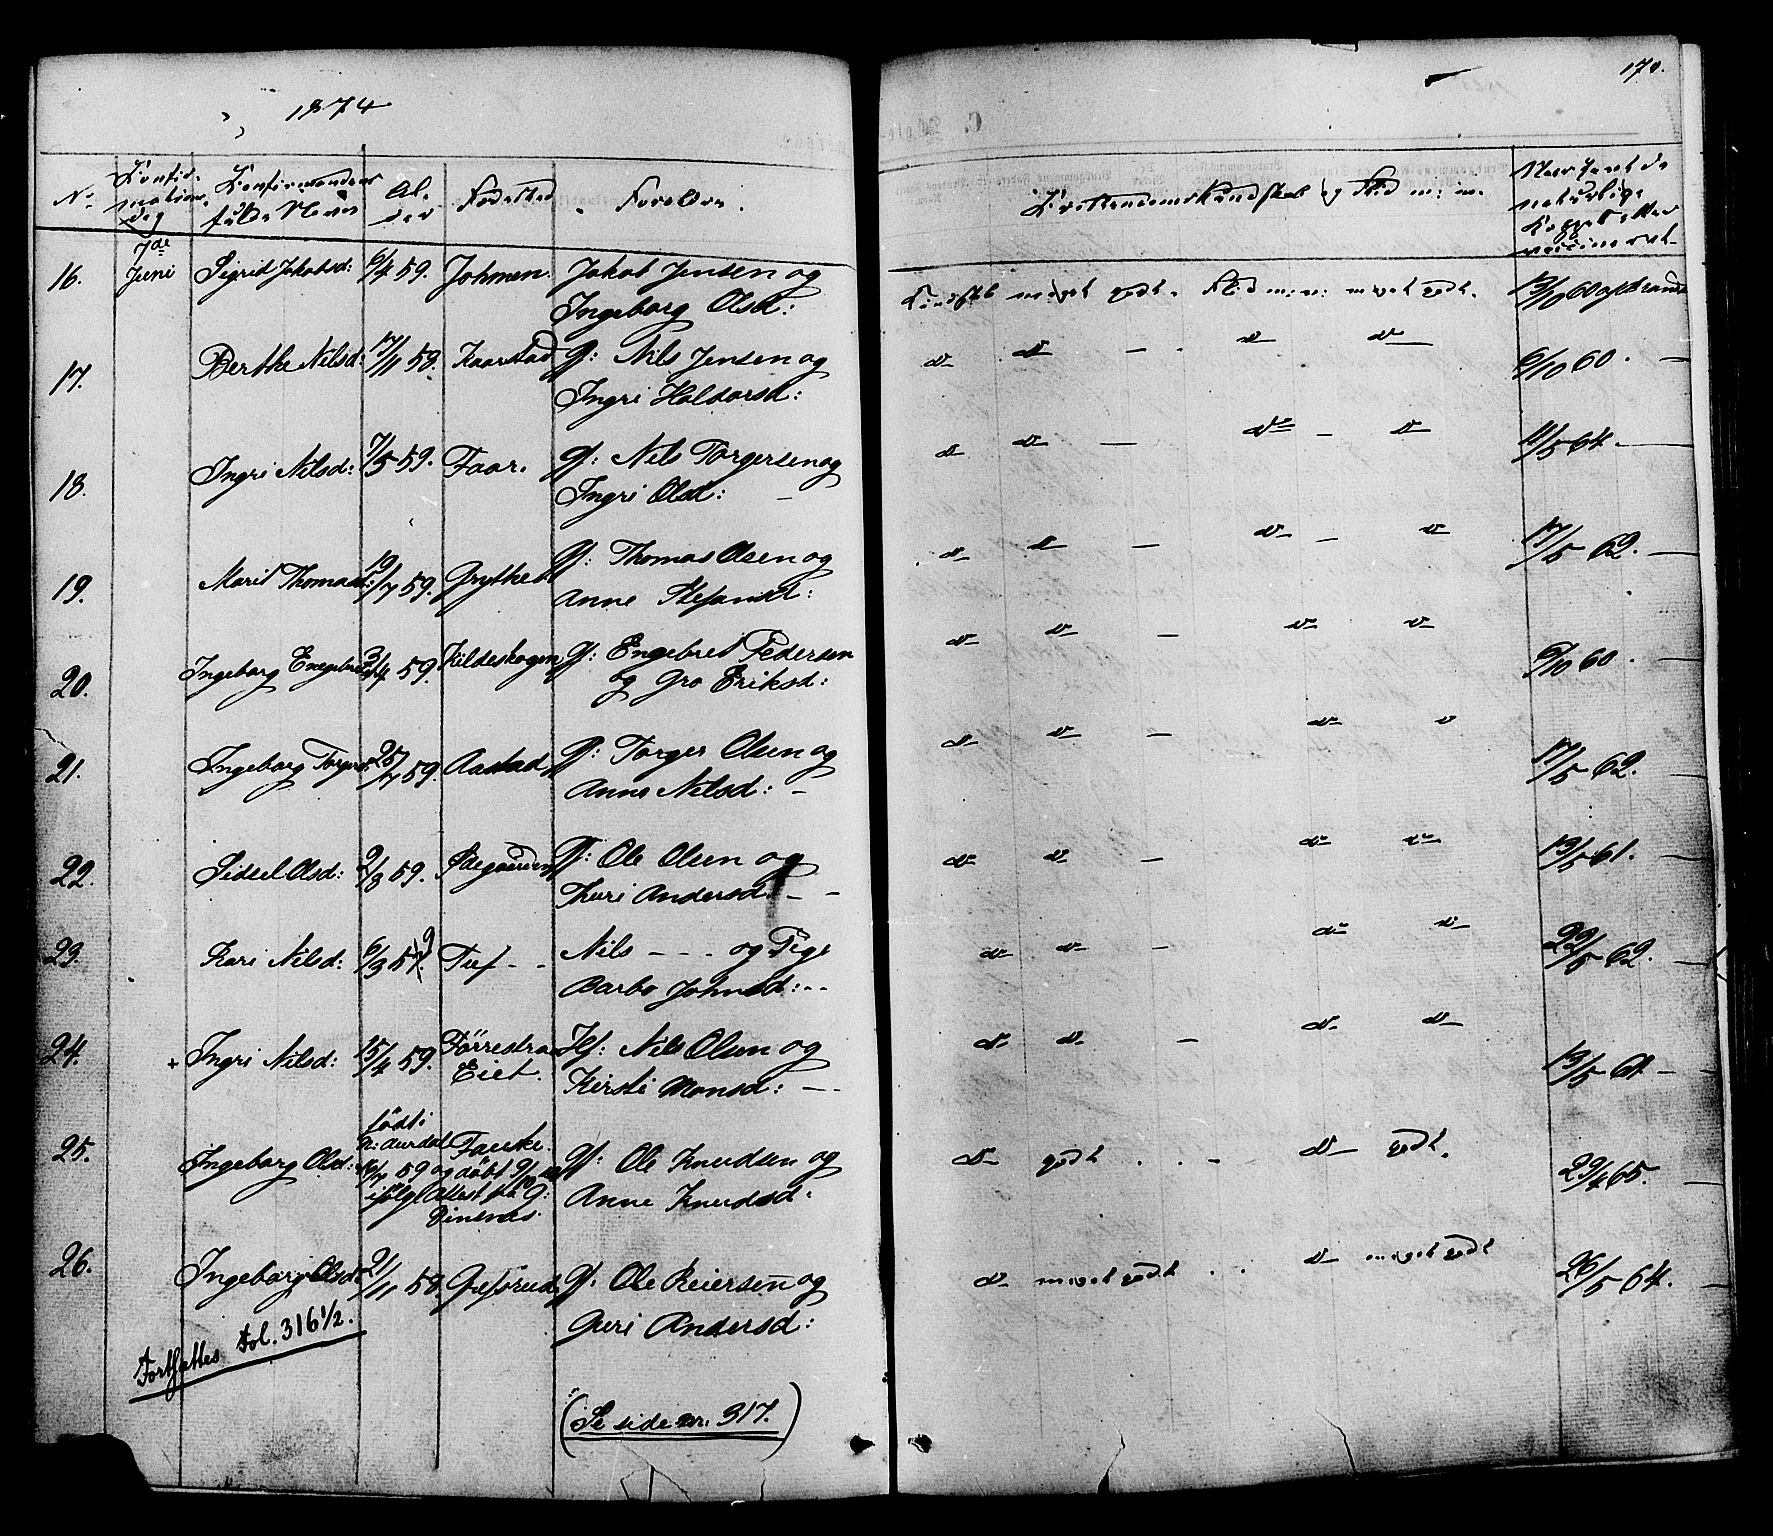 1874
170.
No Confirmations Dag Confirmandens fulde Navn Alder Fødested Forældre. Christendomskundskab og Flid m: m. Naar havt de naturlige Kopper eller vaccineret
16. 7de Juni Sigrid Jakobsd: 6/4 59. Johmen. Jakob Jensen og Kundskab meget godt. Flid m: m: meget godt. 60
Ingeborg Olsd:
17. Berthe Nilsd: 17/11 58. Kaarstad Gf: Nils Jensen og do do — . do do 6/10 60. —
Ingri Haldorsd:
18. Ingri Nilsd: 7/5 59. Faar. Gf: Nils Torgersen og do do — do — do 11/5 64. —
Ingri Olsd: —
19. Marit Thomasd: 19/7 59. Grythe Gf: Thomas Olsen og do do — do — do 17/5 62. —
Anne Stefansd:
20. Ingeborg Engebretsd 3/4 59. Kildeskogen Gf: Engebret Pedersen do do — do do 6/10 60. —
og Gro Eriksd:
21. Ingeborg Torgersd. 25/7 59. Aastad Gf: Torger Olsen og do do — do do 17/5 62. —
Anne Nilsd: —
22. Sidsel Olsd: 2/8 59. Gf: Ole Olsen og do do — do do 13/5 61. —
Thuri Andersd: — —
23. Kari Nilsd: 6/3 57. 9 Tuf - - Nils — - - og Pige do do — do do 22/5 62. —
Barbo Johnsd: - -
24. + Ingri Nilsd: 15/4 59. Førrestra Eiet. Hf: Nils Olsen og do do — do do 13/5 61 — —
Kirsti Monsd: — -
25. Ingeborg Olsd: født i N: Aurdal 59 Fauske. og døbt Gf: Ole Knudsen og do godt . . - — do godt. 29/4 65. —
ifølge Attest fra Anne Knudsd.
26. Ingeborg Olsd: 21/11 58. Gf. Ole Reiersen og do meget godt . . do meget godt 26/5 64. —
Guri Andersd:
Fortsættes Fol. 316 1/2.
(Se side nr. 317.)